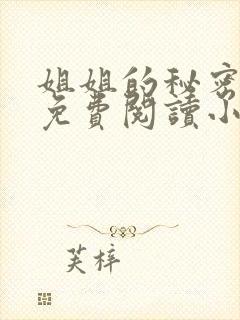 姐姐的秘密
免費閱讀小
芙梓